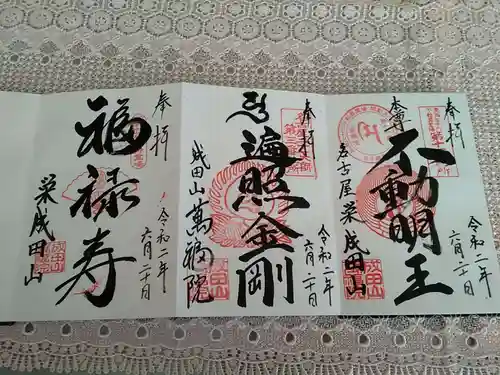 奉拝
本尊
不動明王
名古屋 栄 成田山
令和二年
六月二十日
奉拝
遍照金剛
成田山萬福院
令和二年
六月二十日
奉拝
福禄寿
栄成田山
令和二年
六月二十日